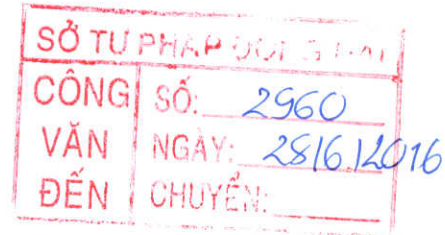 SỞ TƯ PHÁP ĐỒNG NAI
CÔNG VĂN ĐẾN
SỐ: 2960
NGÀY: 28/6/2016
CHUYỂN: